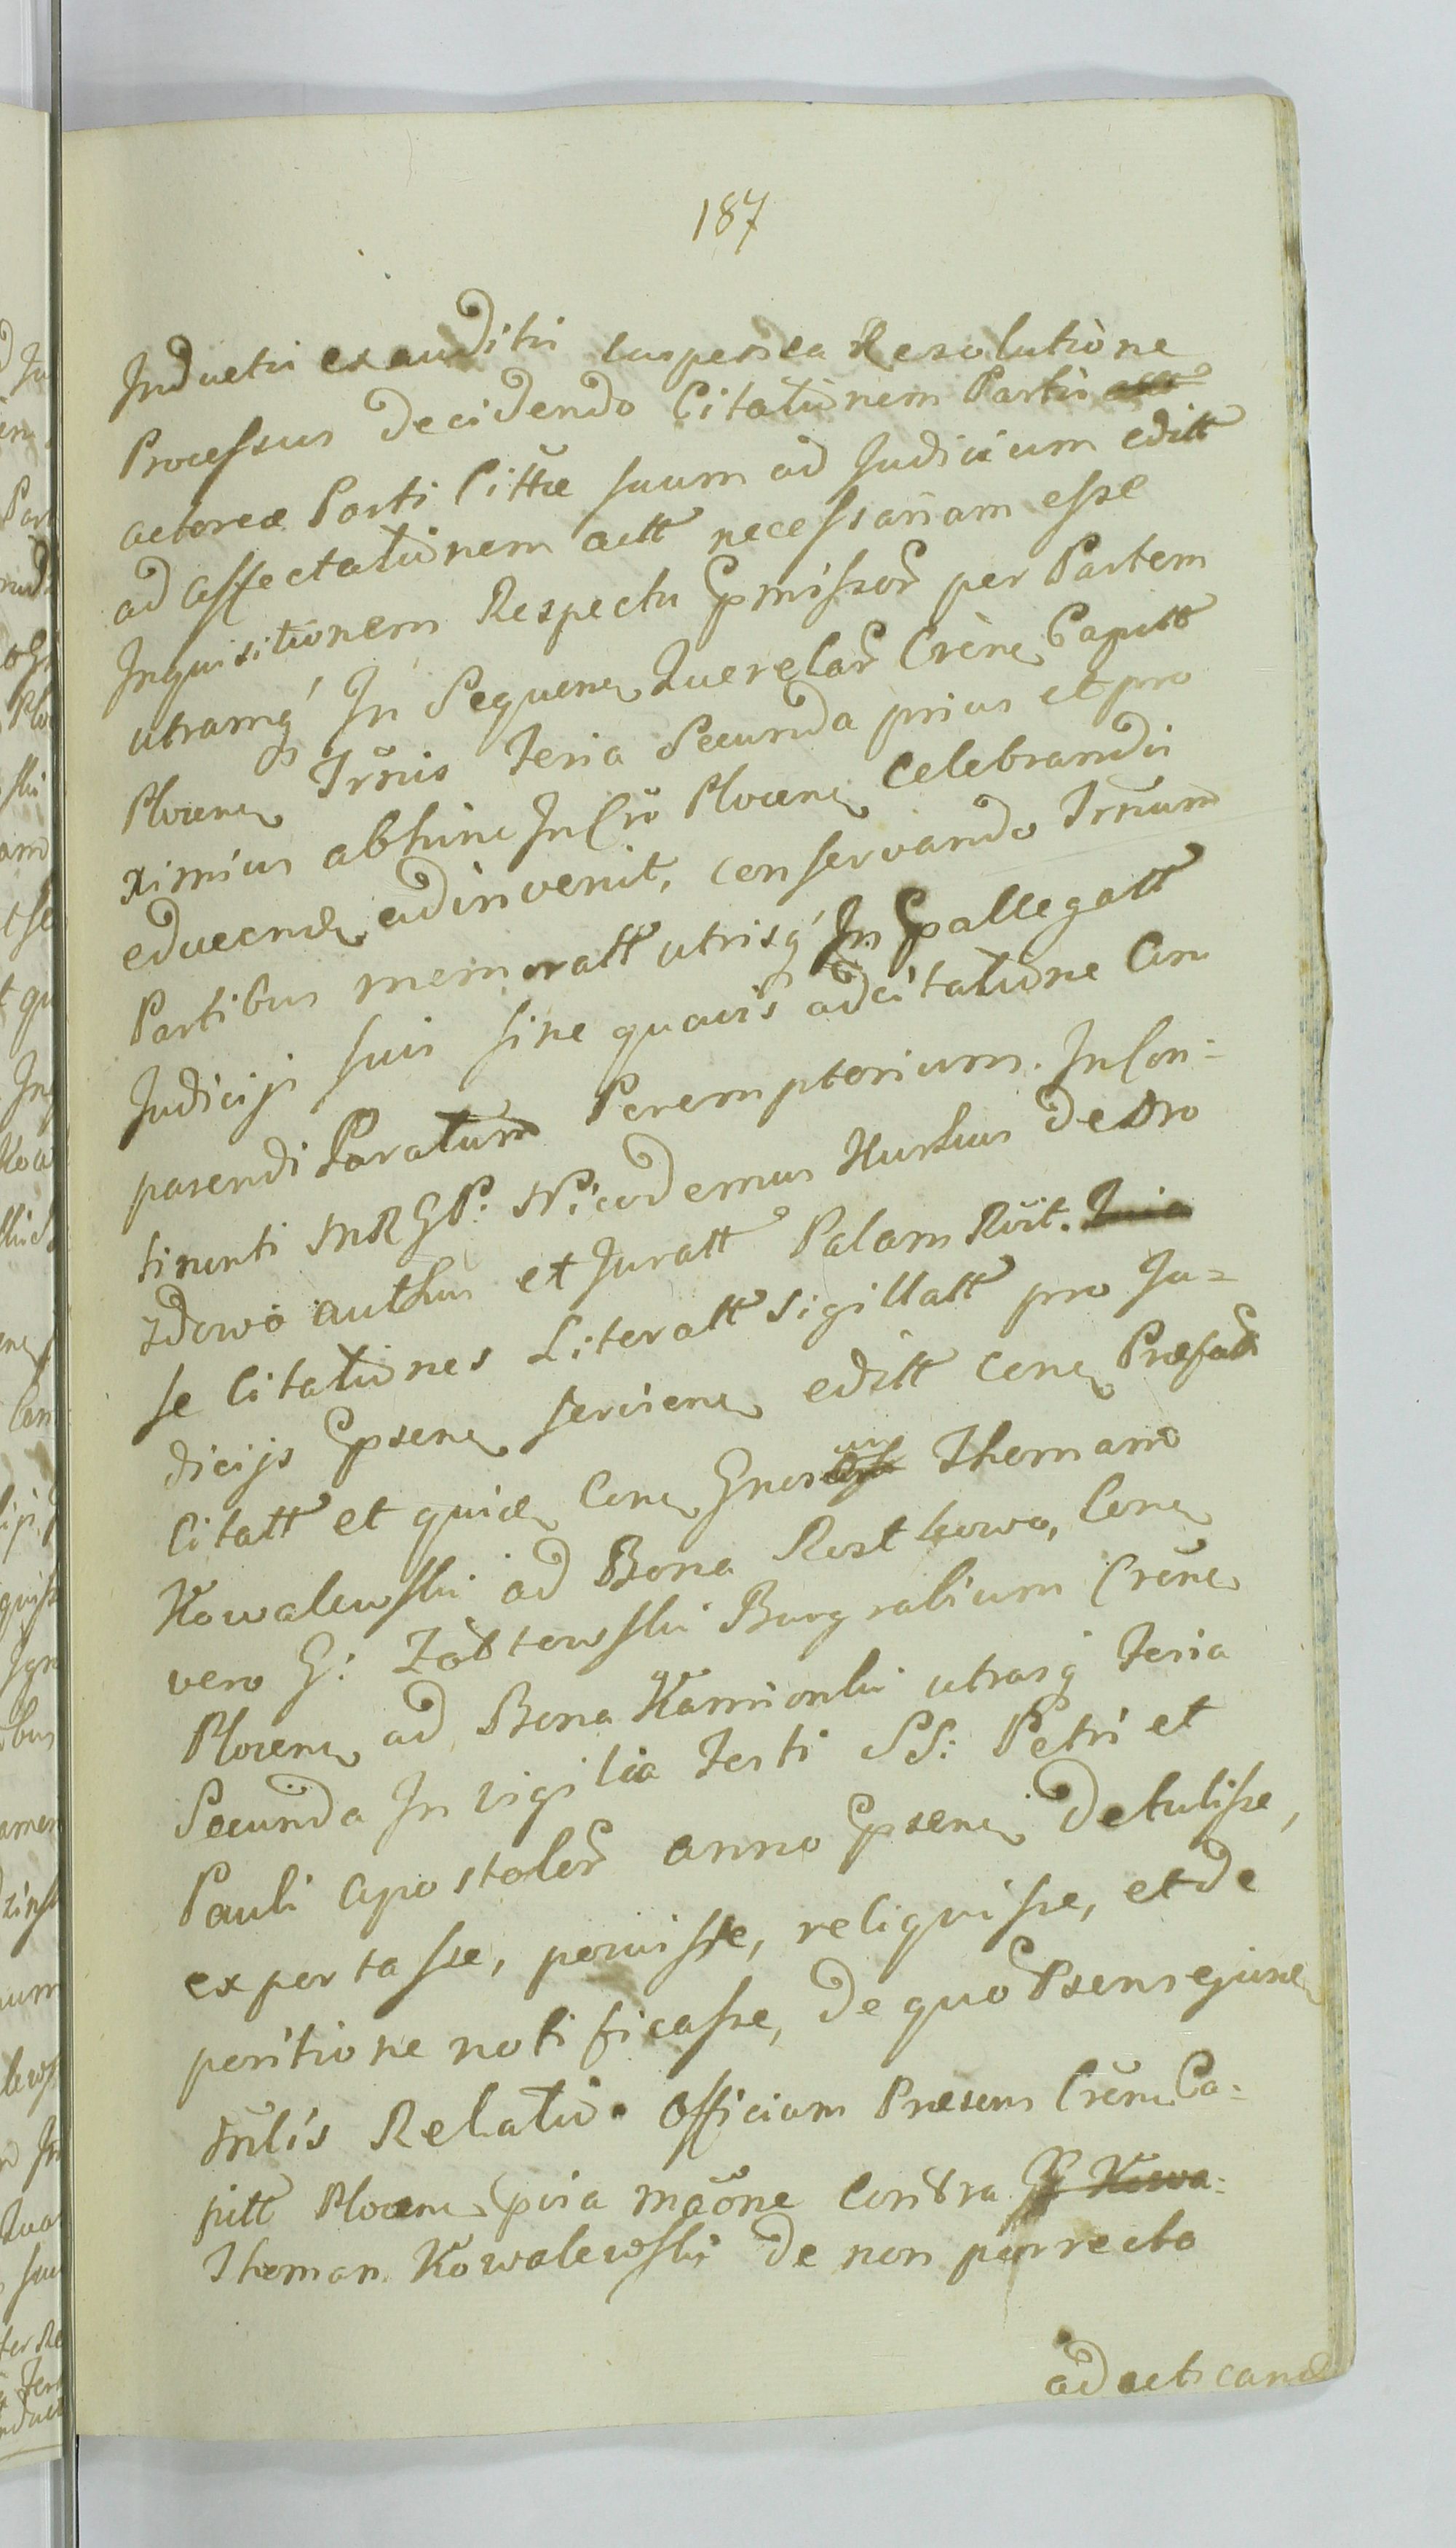 187
Inductis exauditis suspensa Resolutione
Processus decidendo Citationem Partis
actoreæ Parti Cittæ suum ad Judicium editt
ad affectationem actt necessariam esse
Inquisitionem Respectu Præmissor per Partem
utramq́ In Sequenꝫ Querelar Crēnꝫ Capitt
Plocenꝫ Trm̄is Feria Secunda prius et pro
ximius abhinc In Cr̄o Plocenꝫ celebrandis
educendꝫ adinvenit, conservando Trm̄um
Partibus memoratt utrisq́ In Præallegatt
Judicijs suis sine quavis adcitatione Com
parendi Paratum Peremptorium. In Con-
tinenti MRGP. Nicodemus Kurkus de Dro
zdowo authus et Juratt Palam R̄cit.
se Citationes Literatt Sigillatt pro Ju=
dicijs Præsenꝫ servienꝫ editt conꝫ Præfatt
Citatt et quidꝫ Conꝫ Gnosum Thomam
Kowalewski ad Bona Rostkowo, Conꝫ
vero G: Żółtowski Burgrabium Crēnꝫ
Plocenꝫ ad Bona Kamionki utrasq́ Feria
Secunda In Vigilia Festi SS: Petri et
Pauli Apostolor anno Præsenꝫ detulisse,
exportasse, posuisse, reliquisse, et de
positione notificasse, de quo Præsens ejusdꝫ
Mnlis Relatio. Officium Præsens Crēnꝫ Ca-
pitt Plocenꝫ Prævia māōne contra
Thomam Kowalewski de non porrecto
ad acticand